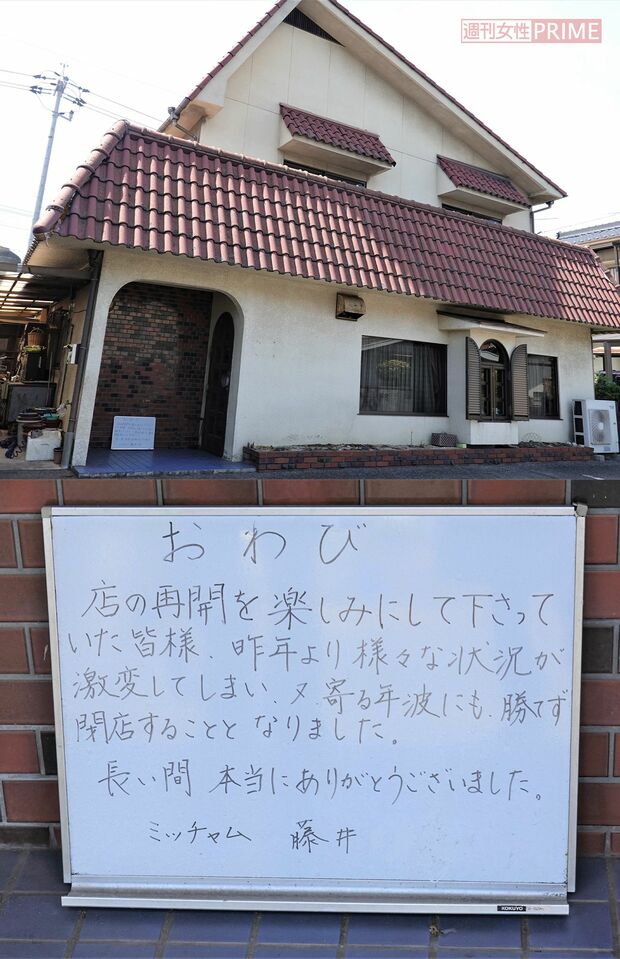 週刊女性PRIME
おわび
店の再開を楽しみにして下さって
いた皆様、昨年より様々な状況が
激変してしまい、又寄る年波にも、勝てず
閉店することとなりました。
長い間 本当にありがとうございました。
ミッチャム 藤井
KOKUYO